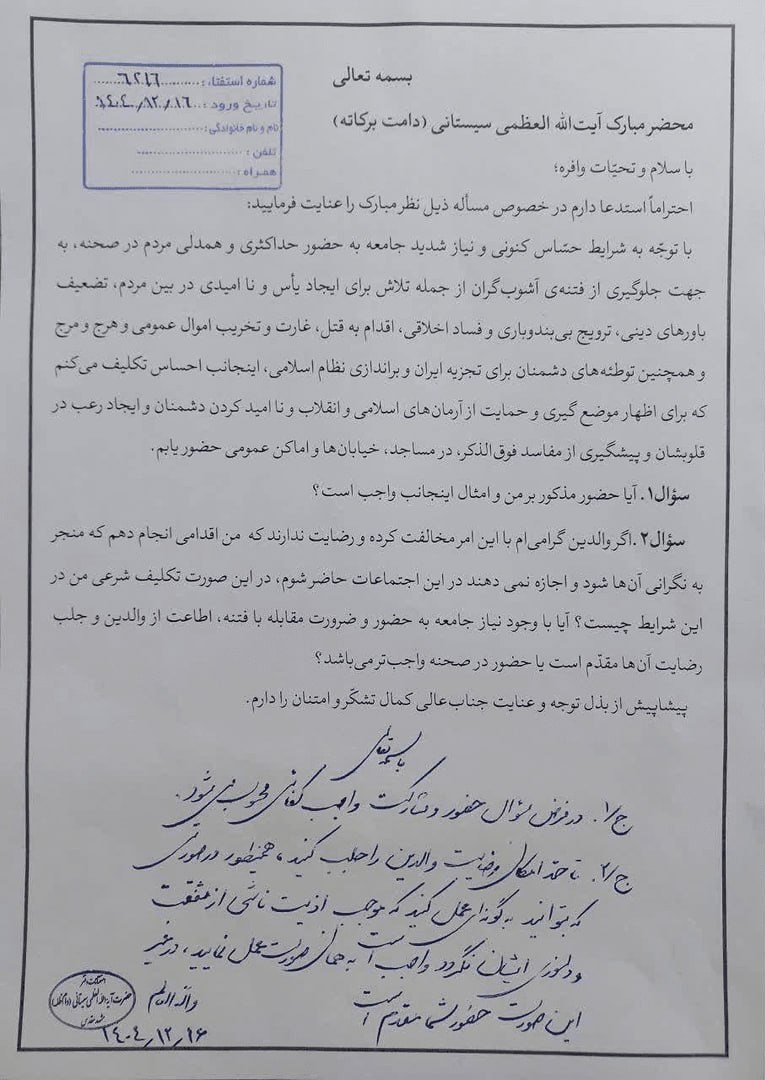 بسمه تعالی
شماره استفتاء: ۶۲۱۶
تاریخ ورود: ۱۴۰۴/۱۲/۱۶
نام و نام خانوادگی:
تلفن:
همراه:
محضر مبارک آیت‌الله العظمی سیستانی (دامت برکاته)
با سلام و تحیّات وافره؛
احتراماً استدعا دارم در خصوص مسأله ذیل نظر مبارک را عنایت فرمایید:
با توجّه به شرایط حسّاس کنونی و نیاز شدید جامعه به حضور حداکثری و همدلی مردم در صحنه، به
جهت جلوگیری از فتنه‌ی آشوب‌گران از جمله تلاش برای ایجاد یأس و نا امیدی در بین مردم، تضعیف
باورهای دینی، ترویج بی‌بندوباری و فساد اخلاقی، اقدام به قتل، غارت و تخریب اموال عمومی و هرج و مرج
و همچنین توطئه‌های دشمنان برای تجزیه ایران و براندازی نظام اسلامی، اینجانب احساس تکلیف می‌کنم
که برای اظهار موضع گیری و حمایت از آرمان‌های اسلامی و انقلاب و نا امید کردن دشمنان و ایجاد رعب در
قلوبشان و پیشگیری از مفاسد فوق‌الذکر، در مساجد، خیابان‌ها و اماکن عمومی حضور یابم.
سؤال۱. آیا حضور مذکور بر من و امثال اینجانب واجب است؟
سؤال۲. اگر والدین گرامی‌ام با این امر مخالفت کرده و رضایت ندارند که من اقدامی انجام دهم که منجر
به نگرانی آن‌ها شود و اجازه نمی دهند در این اجتماعات حاضر شوم، در این صورت تکلیف شرعی من در
این شرایط چیست؟ آیا با وجود نیاز جامعه به حضور و ضرورت مقابله با فتنه، اطاعت از والدین و جلب
رضایت آن‌ها مقدّم است یا حضور در صحنه واجب‌تر می‌باشد؟
پیشاپیش از بذل توجه و عنایت جناب‌عالی کمال تشکّر و امتنان را دارم.
باسمه تعالی
ج/۱. در فرض سؤال حضور و مشارکت واجب کفائی محسوب می شود.
ج/۲. تا حد امکان رضایت والدین را جلب کنید، همینطور در صورتی
که بتوانید به گونه‌ای عمل کنید که موجب اذیت ناشی از شفقت
و دلسوزی ایشان نگردد واجب است به همان صورت عمل نمایید، در غیر
این صورت حضور شما مقدم است
والله العالم
حضرت آیة الله العظمی سیستانی (دام ظله)
مشهد مقدس
۱۴۰۴/۱۲/۱۶